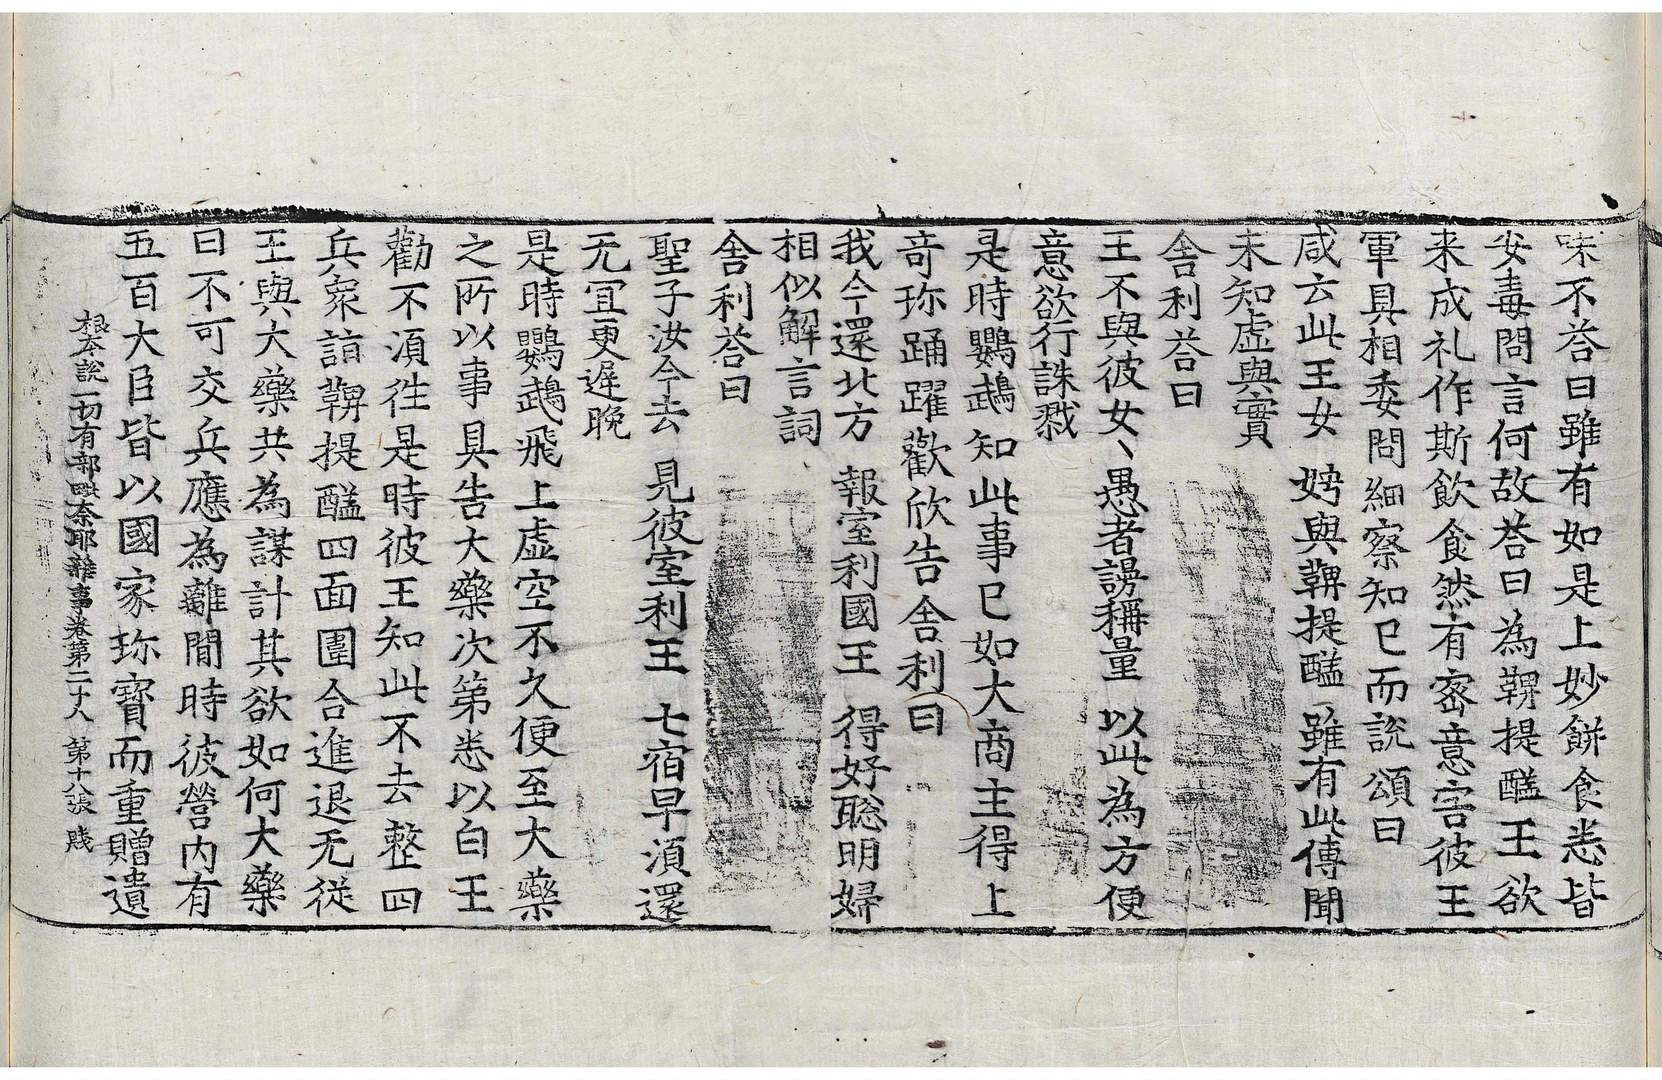 味不荅曰雖有如是上妙餅食悉皆
安毒問言何故荅曰為鞞提醯王欲
来成礼作斯飲食然有密意害彼王
軍具相委問細察知已而說頌曰
咸云此王女　娉與鞞提醯　雖有此傳聞
未知虛與實
舍利荅曰
王不與彼女　愚者謾稱量　以此為方便
意欲行誅戮
是時鸚鵡知此事已如大商主得上
奇珎踊躍歡欣告舍利曰
我今還北方　報室利國王　得好聡明婦
相似解言詞
舍利荅曰
聖子汝今去　見彼室利王　七宿早湏還
无冝更遅晚
是時鸚鵡飛上虛空不久便至大藥
之所以事具告大藥次第悉以白王
勸不湏徃是時彼王知此不去整四
兵衆詣鞞提醯四面圍合進退无従
王與大藥共為謀計其欲如何大藥
曰不可交兵應為離間時彼營内有
五百大臣皆以國家珎寶而重贈遺
根本說一切有部毗奈耶雜事卷第二十八　第十八張　賤